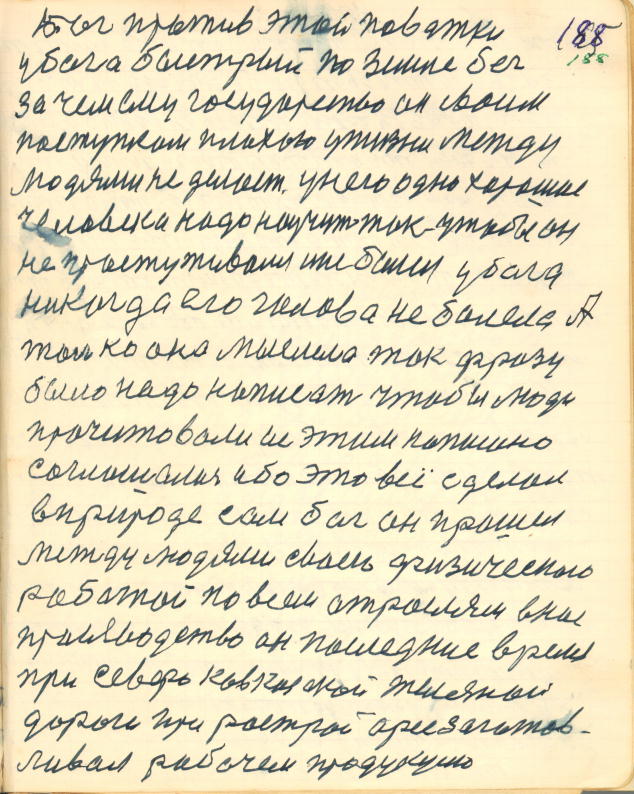 Бог против этой поватки 188
188
у бога быстрый по земле бег
зачем ему государство он своим
поступком плохого у жизни между
людями не делает, у него одно хорошее
человека надо научит так чтобы он
не простуживали и не болели у бога
никогда его голова не болела А
только она мыслила так фразу
было надо написат чтобы люди
прочитовали и с этим написано
согласились ибо это всё сделал
в природе сам бог он прошел
между людями своею физическою
работой по всем отраслям вное
производство он последние время
при северо кавкаской железной
дороги при
ливал рабочем продукцию